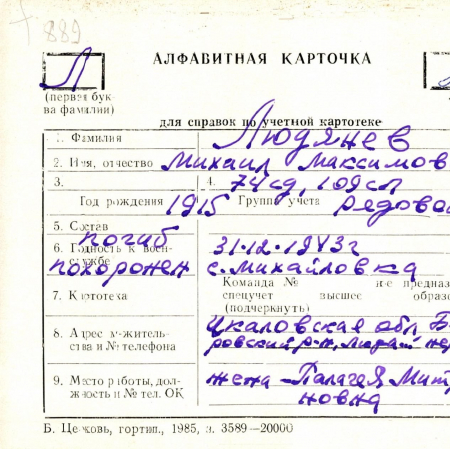 889
Л
АЛФАВИТНАЯ КАРТОЧКА
(первая бук-
ва фамилии)
для справок по учетной картотеке
1. Фамилия Людянев
2. Имя, отчество Михаил Максимов
3. 4. 74 сд, 109 сп
Год рождения 1915 Группа учета рядово
5. Состав погиб
6. Годность к воен- 31.12.1943 г
службе похоронен с. Михайловка
Команда № не предназ
7. Картотека спецучет высшее образо
(подчеркнуть)
8. Адрес м-житель- Чкаловская обл Б
ства и № телефона ровский р-н,
9. Место работы, дол- жена - Палагея Мит
жность и № тел. ОК новна
Б. Церковь, гортип., 1985, з. 3589—20000